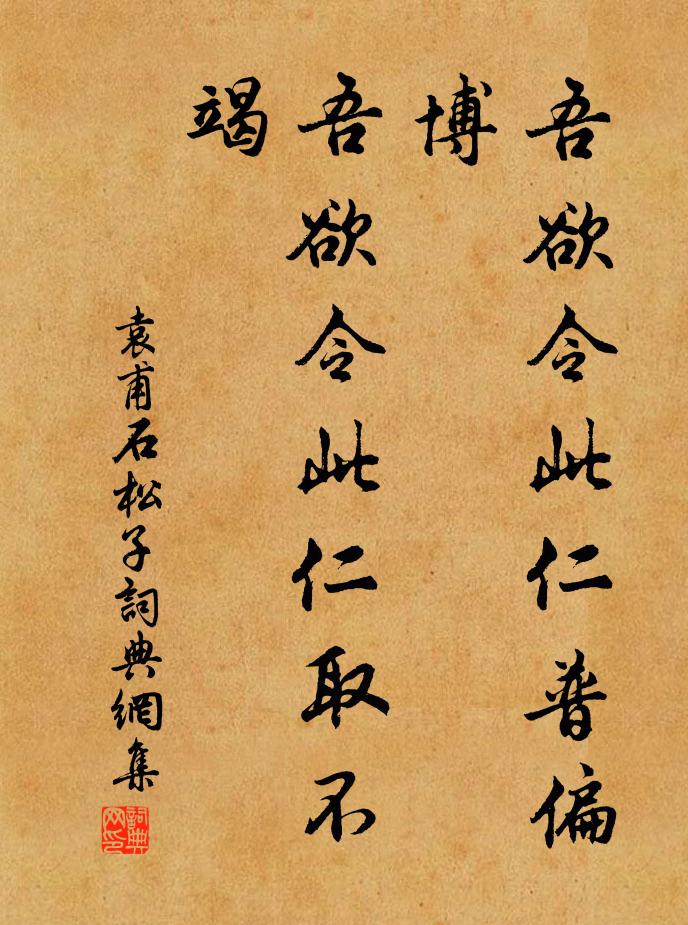 吾欲令此仁普偏
博
吾欲令此仁取不
竭
袁甫石松子詞典網集
詞典网印